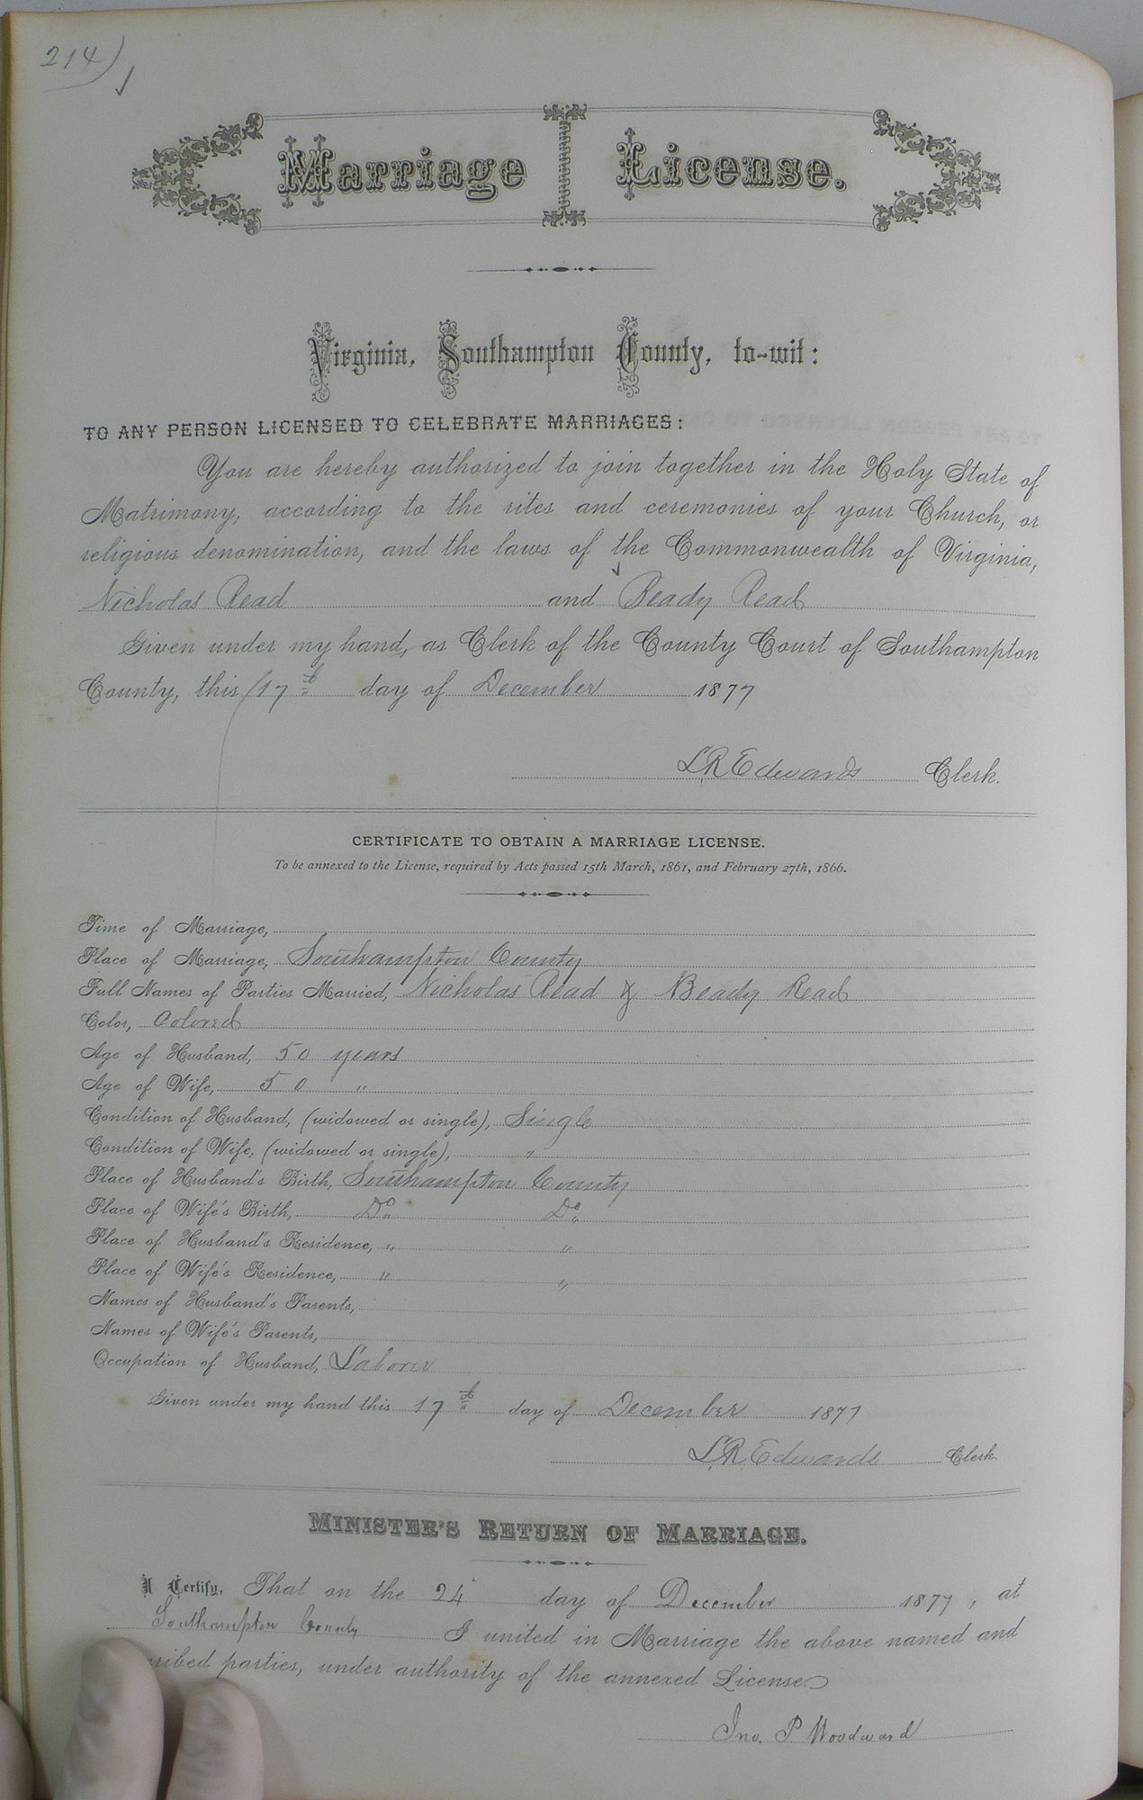 214)
Marriage License.
Virginia, Southampton County, to-wit:
TO ANY PERSON LICENSED TO CELEBRATE MARRIAGES:
You are hereby authorized to join together in the Holy State of
Matrimony, according to the rites and ceremonies of your Church, or
religious denomination, and the laws of the Commonwealth of Virginia,
Nicholas Read and Beady Read
Given under my hand, as Clerk of the County Court of Southampton
County, this 17th day of December 1877
L.R. Edwards Clerk.
CERTIFICATE TO OBTAIN A MARRIAGE LICENSE.
To be annexed to the License, required by Acts passed 15th March, 1861, and February 27th, 1866.
Time of Marriage,
Place of Marriage, Southampton County
Full Names of Parties Married, Nicholas Read & Beady Read
Color, Colored
Age of Husband, 50 years
Age of Wife, 50 "
Condition of Husband, (widowed or single), Single
Condition of Wife, (widowed or single), "
Place of Husband's Birth, Southampton County
Place of Wife's Birth, Do Do
Place of Husband's Residence, " "
Place of Wife's Residence, " "
Names of Husband's Parents,
Names of Wife's Parents,
Occupation of Husband, Laborer
Given under my hand this 17th day of December 1877
L.R. Edwards Clerk
MINISTER'S RETURN OF MARRIAGE.
I Certify, That on the 24 day of December 1877, at
Southampton County I united in Marriage the above named and
cribed parties, under authority of the annexed License
Jno. P. Woodward